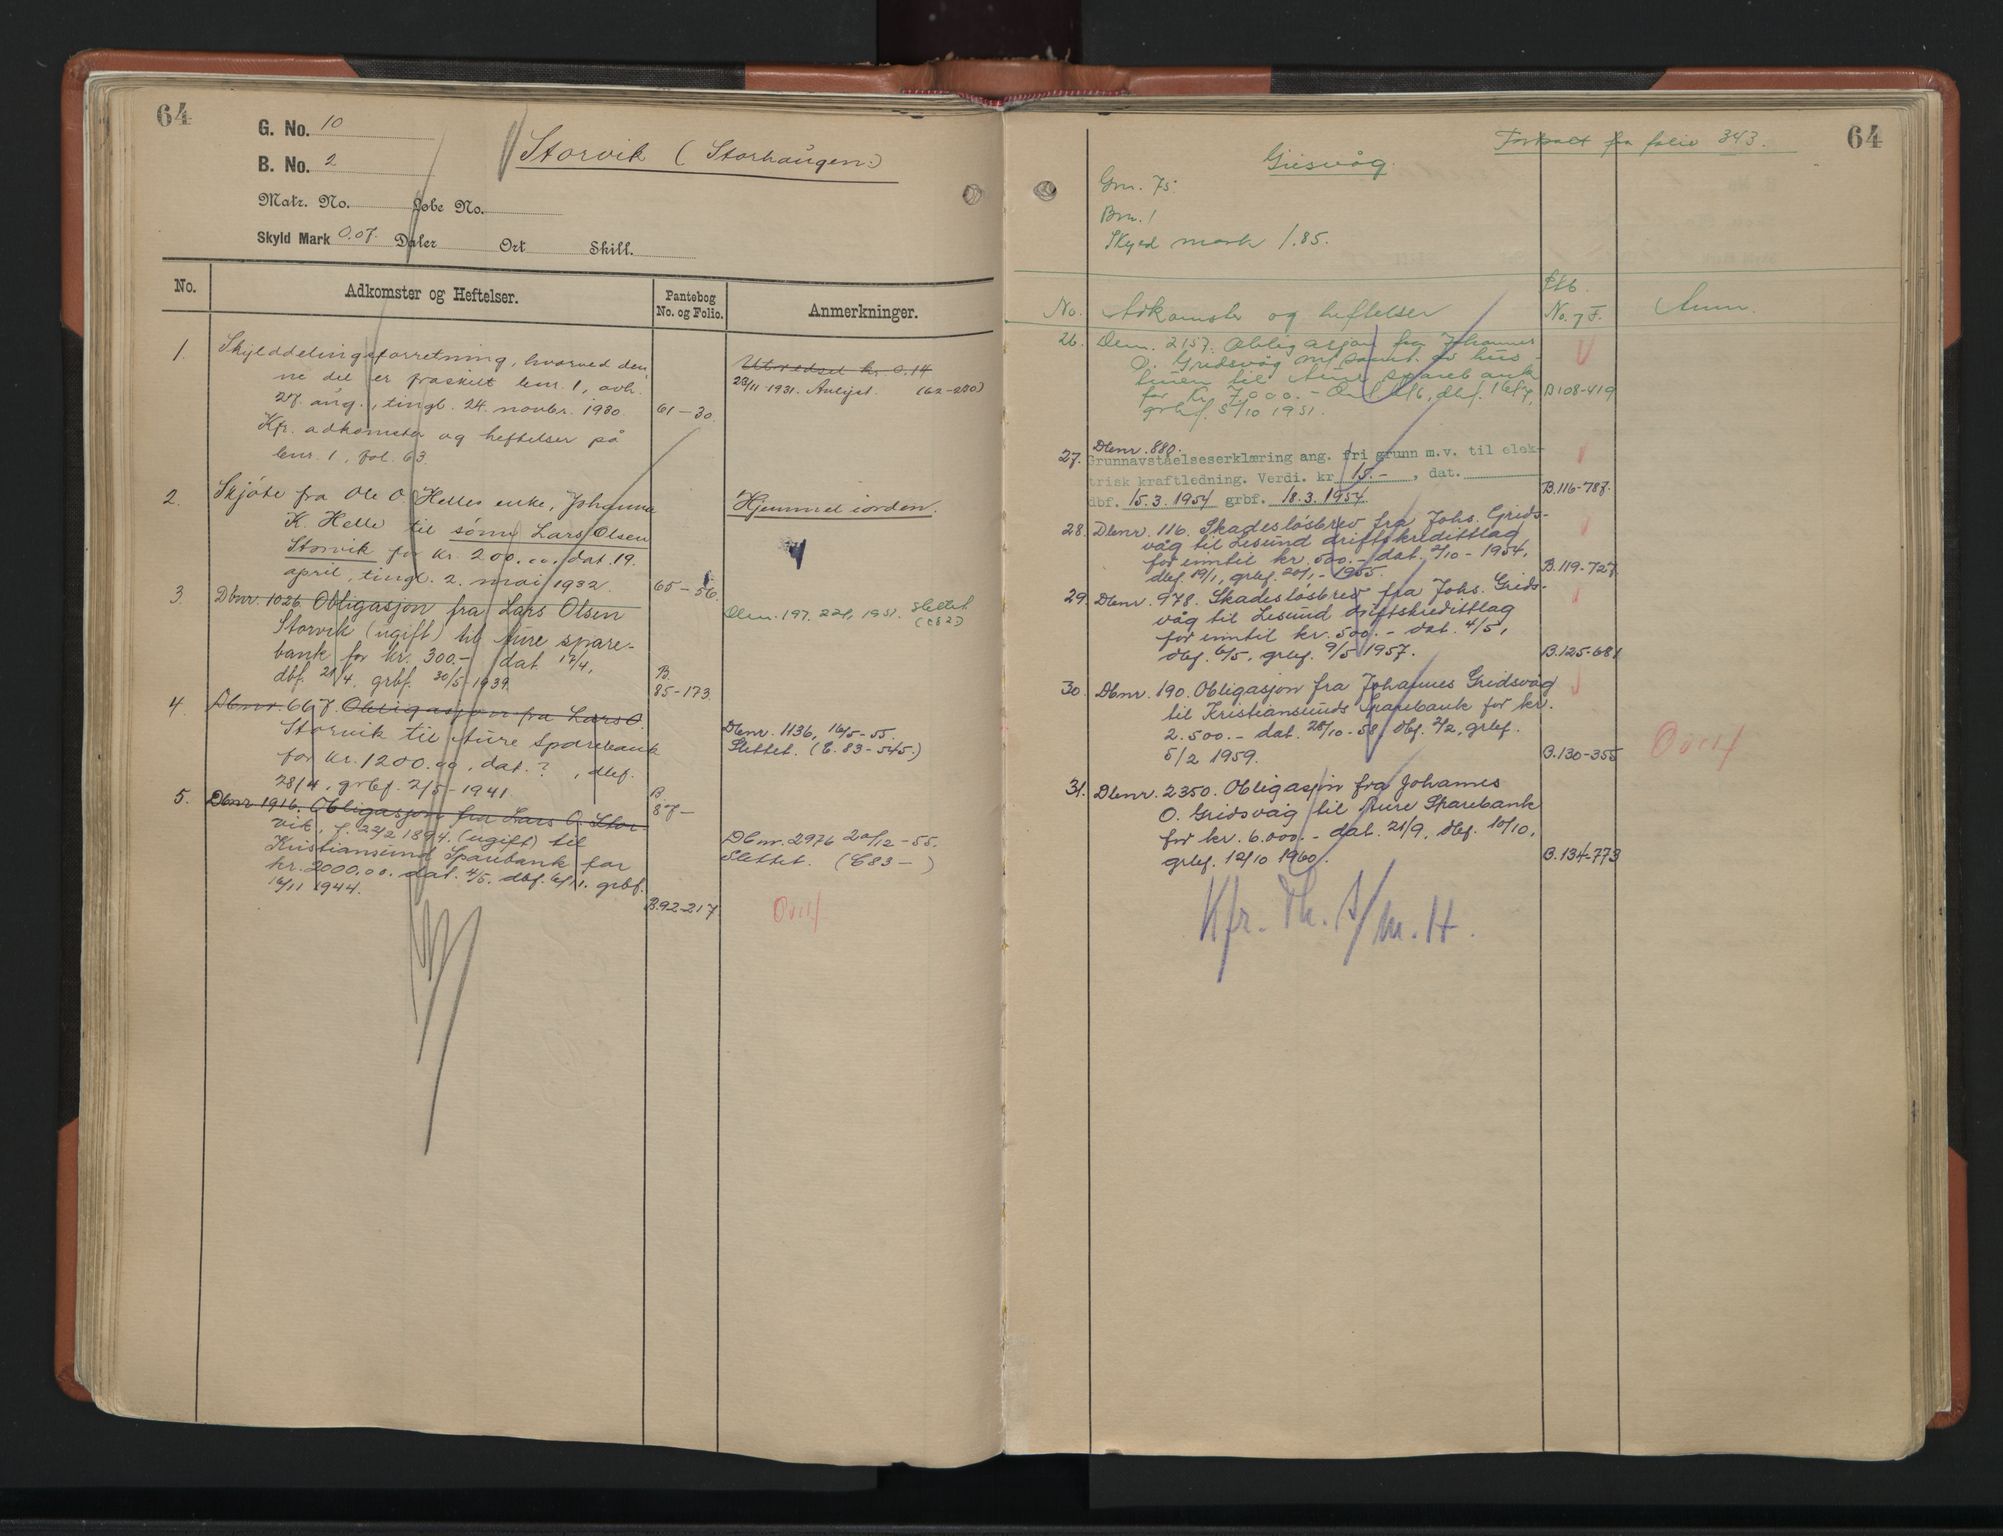 64
G. No. 10
B. No. 2
Storvik (Storhaugen.)
Matr. No. Løbe No.
Skyld Mark 0.07. Daler Ort Skill.
No. Adkomster og Heftelser. Pantebog No. og Folio. Anmerkninger.
1. Skylddelingsforretning, hvorved den-
ne del er fraskilt bnr. 1, avh.
27. aug., tingl. 24. novbr. 1930. 61-30.
Kfr. adkomster og heftelser på
bnr. 1, fol. 63.
Utvedsel kr. 0.14
23/11-1931. Avlyst. (62-280)
2. Skjøte fra Ole O. Helles enke, Johanna
K. Helle til sønn Lars Olsen
Storvik for kr. 200.00, dat. 19.
april, tingl. 2. mai 1932. 65-56.
Hjemmel iorden.
3. Dbnr. 1026. Obligasjon fra Lars Olsen
Storvik (ugift) til Aure spare-
bank for kr. 300.- dat. 17/4,
dbf. 28/4. grbf. 30/5-1939. B. 85-173
Dbnr. 197. 22/1, 1951. Slettet.
4. Dbnr. 667. Obligasjon fra Lars O.
Storvik til Aure Sparebank
for kr. 1200.00, dat. ? , dbf.
28/4, grbf. 2/5-1941. B. 87-
Dbnr. 1136, 16/5-55.
Slettet. (C. 83-545.)
5. Dbnr. 1916. Obligasjon fra Lars O. Stor-
vik, f. 23/2 1894. (ugift) til
Kristiansund Sparebank for
kr. 2000.00. dat. 4/5. dbf. 6/11. grbf.
16/11 1944. B. 92-217
Dbnr. 2976 20/12-55.
Slettet. (C83- )
Overf
64
Forsatt fra folio 343.
Grisvåg.
Gnr. 75.
Bnr. 1
Skyld mark 1.85.
No. Adkomster og heftelser Ptb. No. og F. Anm.
26. Dbnr. 2157. Obligasjon fra Johannes
O. Gridsvåg m/ samt. av hus-
truen til Aure sparebank
for kr. 7.000.- dbf.
grbf. 5/10 1951. B108-419
27. Dbnr. 880.
Grunnavståelseserklæring ang. fri grunn m.v. til elek-
trisk kraftledning. Verdi. kr 15.- , dat.
dbf. 15.3.1954 grbf. 18.3.1954 B.116-787.
28. Dbnr. 116. Skadesløsbrev fra Johs. Grids-
våg til Lesund driftskredittlag
for inntil kr. 500.- dat. 2/10-1954,
dbf. 19/1, grbf. 20/1-1955. B.119-727
29. Dbnr. 978. Skadesløsbrev fra Johs. Grids-
våg til Lesund driftskredittlag
for inntil kr. 500.- dat. 4/5,
dbf. 6/5, grbf. 9/5 1957. B.125-681
30. Dbnr. 190. Obligasjon fra Johannes Gridsvåg
til Kristiansunds Sparebank for kr.
2.500.- dat. 28/10-58, dbf. 2/2, grbf.
5/2 1959. B.130-355
Overf
31. Dbnr. 2350. Obligasjon fra Johannes
O. Gridsvåg til Aure Sparebank
for kr. 6.000.- dat. 21/9, dbf. 10/10,
grbf. 12/10 1960. B.134-773
Kfr.